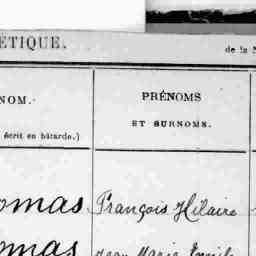 ÉTIQUE. de la
NOM. PRÉNOMS
ET SURNOMS.
écrit en bâtarde.)
omas François Hilaire
omas Jean Marie Emile